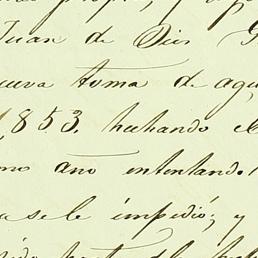 Juan de Dios G
ueva toma de agu
1,853. hechando el
mo año intentando
a se le impidió; y